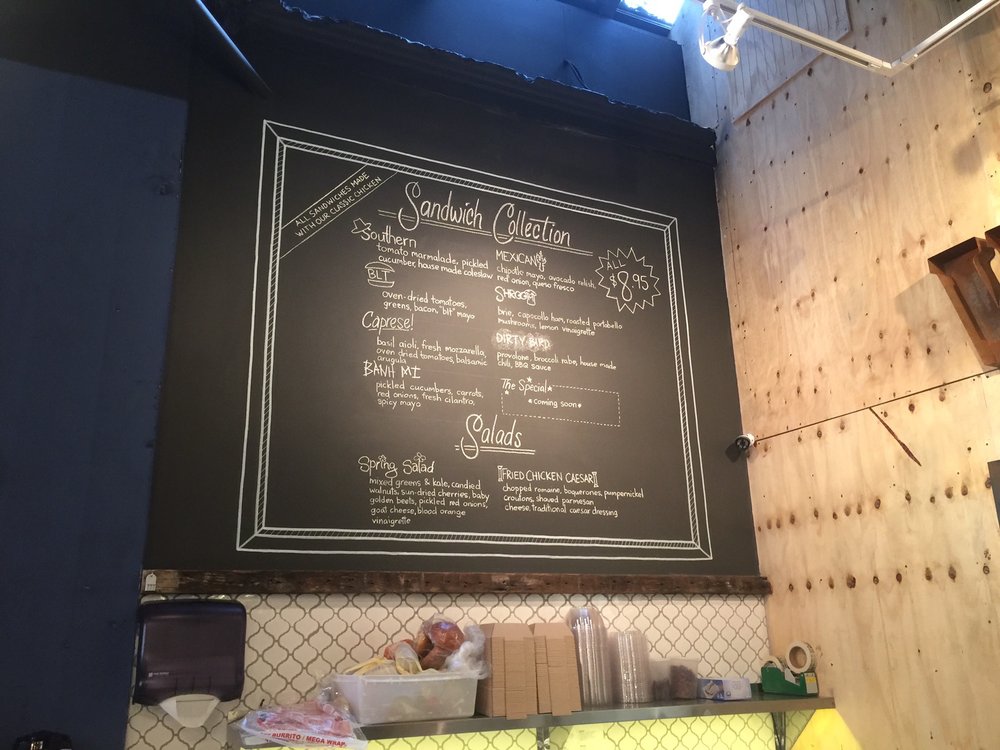 ALL SANDWICHES MADE
WITH OUR CLASSIC CHICKEN
Sandwich Collection
Southern
tomato marmalade, pickled
cucumber, house made coleslaw
BLT
oven-dried tomatoes,
greens, bacon, "blt" mayo
Caprese!
basil aioli, fresh mozzarella,
oven dried tomatoes, balsamic
arugula
BANH MI
pickled cucumbers, carrots,
red onions, fresh cilantro,
spicy mayo
MEXICAN
chipotle mayo, avocado relish,
red onion, queso fresco
SHROOM
brie, capocollo ham, roasted portabello
mushrooms, lemon vinaigrette
DIRTY BIRD
provolone, broccoli rabe, house made
chili, BBQ sauce
The Special
coming soon
ALL
$8.95
Salads
Spring Salad
mixed greens & kale, candied
walnuts, sun-dried cherries, baby
golden beets, pickled red onions,
goat cheese, blood orange
vinaigrette
FRIED CHICKEN CAESAR
chopped romaine, boquerones, pumpernickel
croutons, shaved parmesan
cheese, traditional caesar dressing
BURRITO / MEGA WRAP